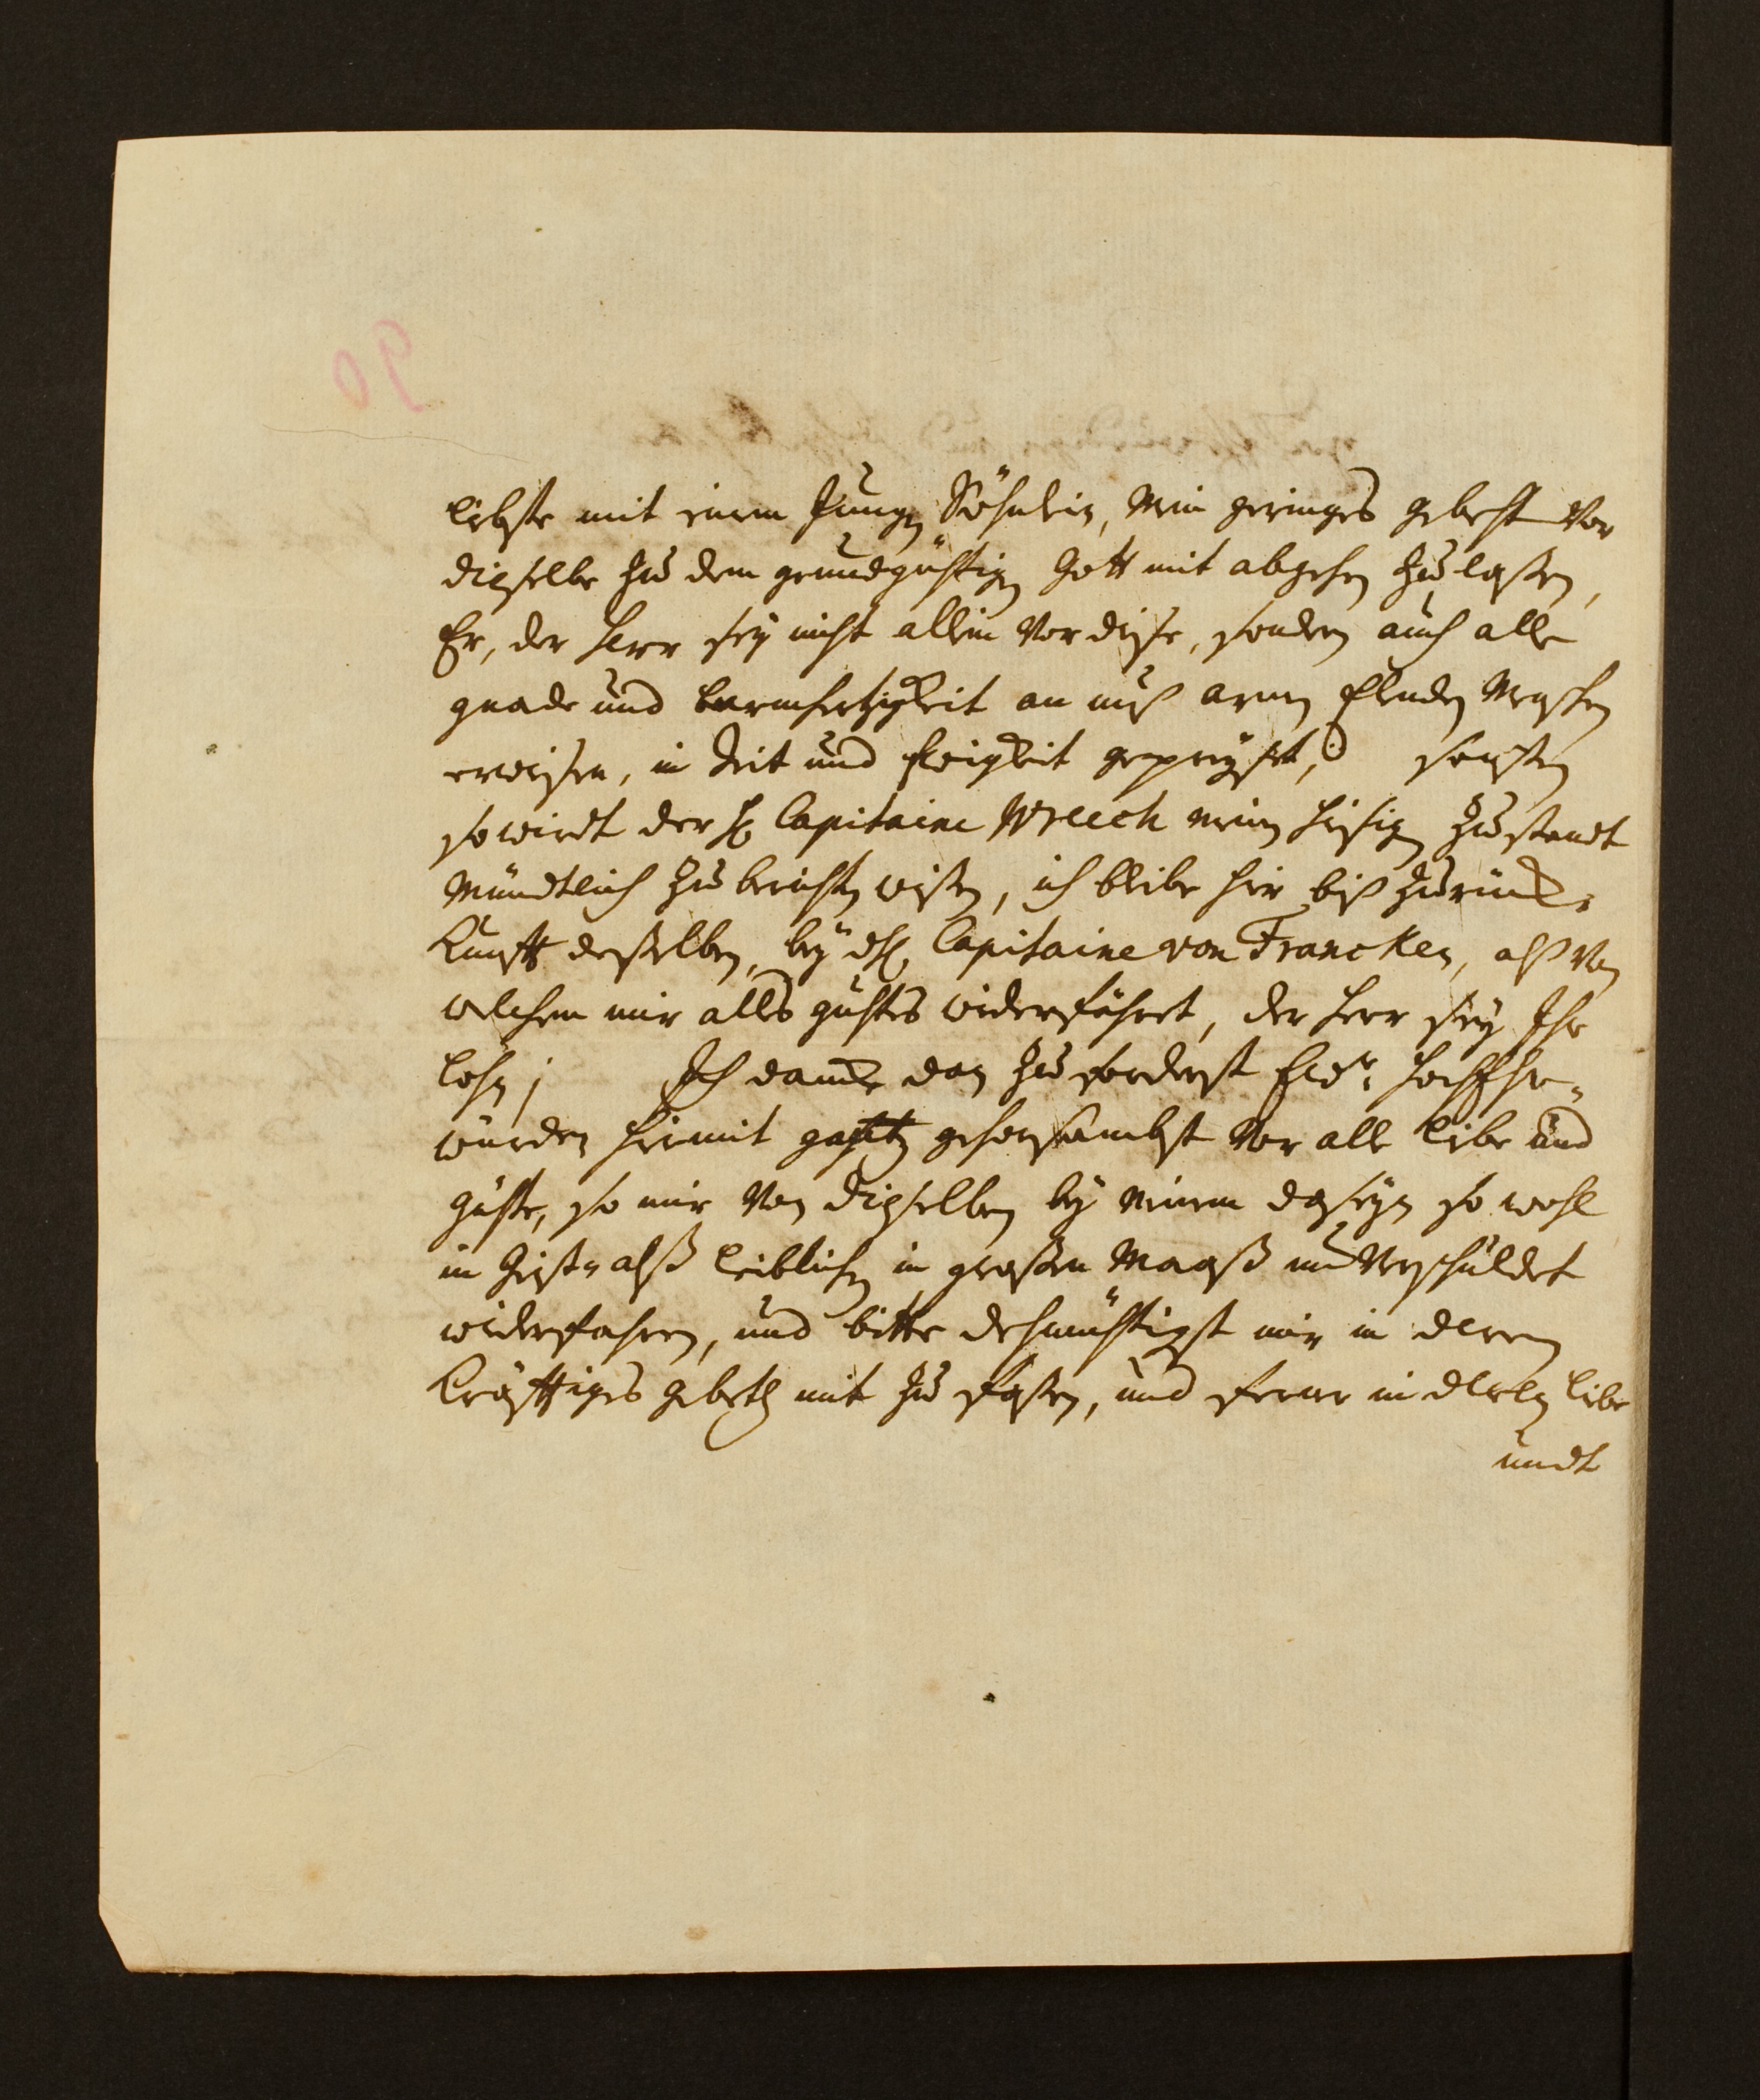 liebste mit einem Jungen Söhnlein, Mein geringes gebeht vor
dieselbe zu dem grundgühtigen Gott mit abgehen zu laßen,
Er, der Herr sey nicht allein vor diese, sondern auch alle
gnade und barmhertzigkeit an uns armen Elenden Menschen
erweisen, in Zeit und Ewigkeit gepreyset, sonsten
so wirdt der H. Capitaine Wreech meinen hiesigen Zustandt
Mündtlich zu berichten wißen, ich bleibe hier biß zurück-
kunfft deßelben, bey dH. Capitaine von Francken, alß von
welchem mir alles guhtes wiederfähret, der Herr sey Ihr
lohn; Ich dancke dan zuforderst Ewr. HochEhr-
würden hiermit gantz gehorsambst vor alle liebe und
gühte, so mir von dieselben bey meinem daseyn so wohl
in Geist- alß leiblichen in großen Maaß unverschuldet
wiederfahren, und bitte dehmühtigst mir in deren
kräfftiges gebeth mit zu faßen, und ferner in deren liebe
undt
90